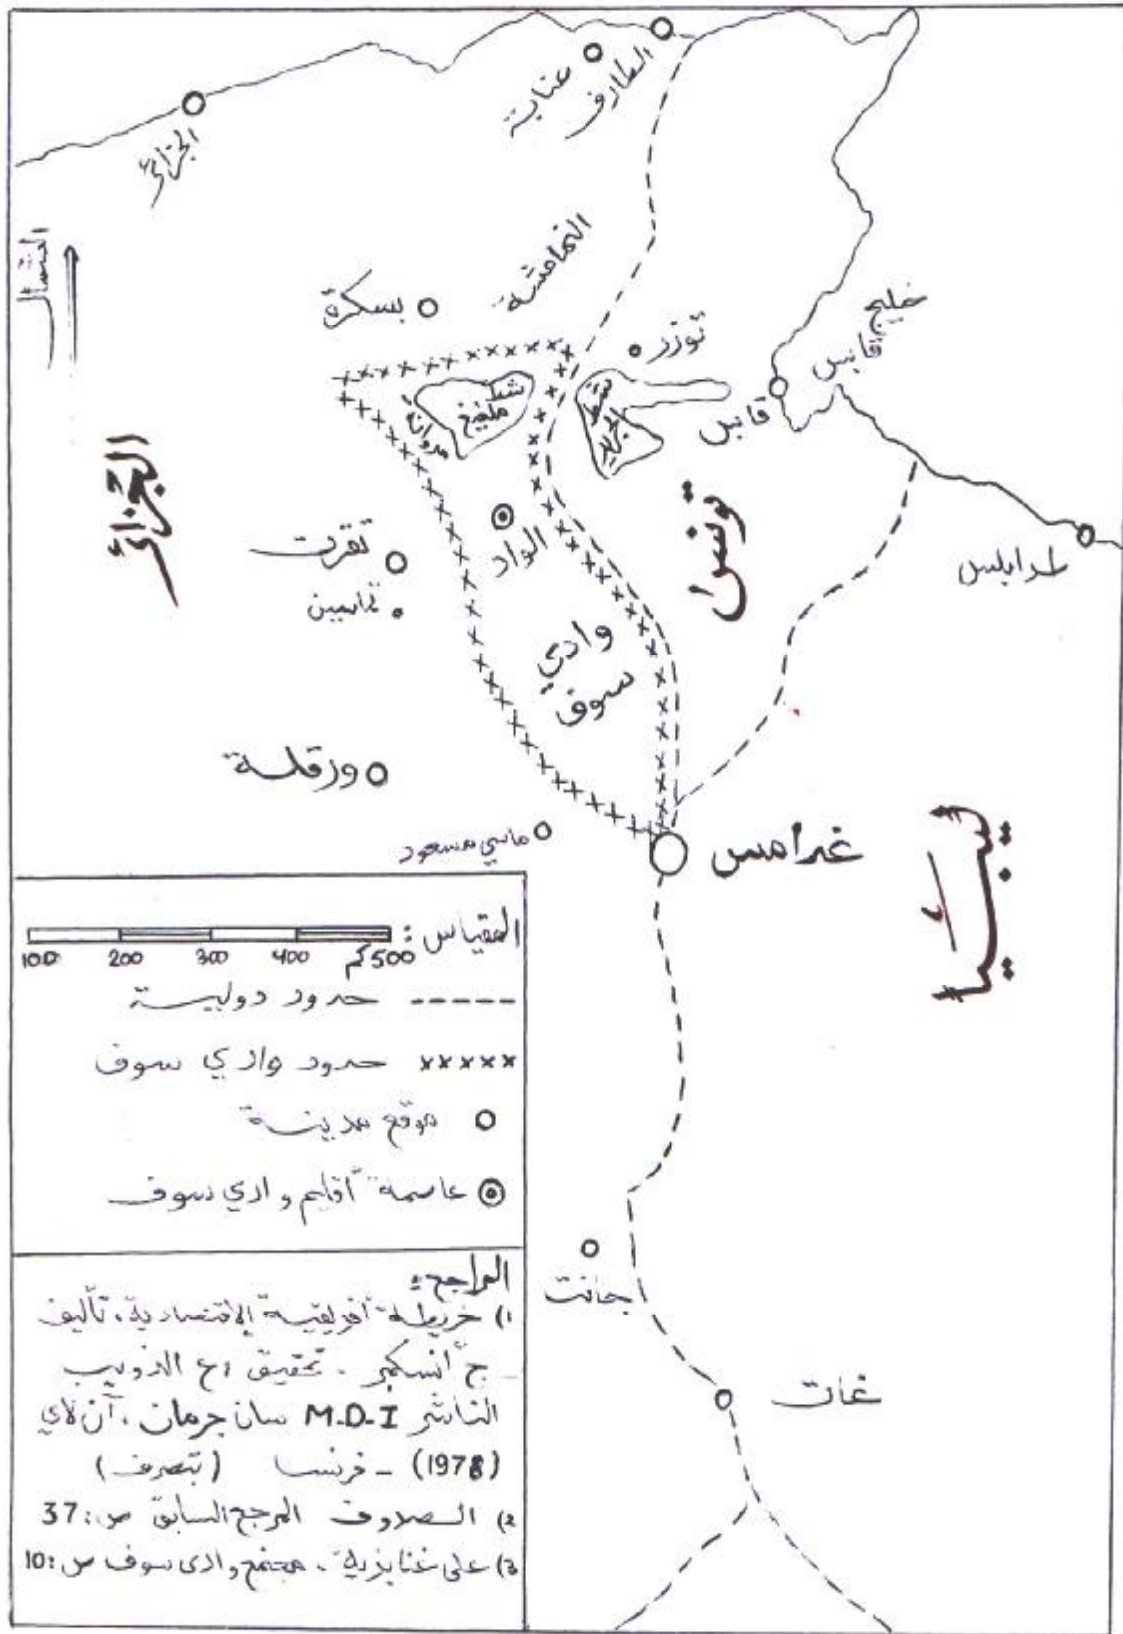 الطارف
عنابة
الجزائر
الشمال
النمامشة
بسكرة
توزر
خليج
قابس
قابس
شط
ملغيغ
مروانة
شط
الجريد
الجزائر
تونس
الواد
تقرت
تماسين
طرابلس
وادي
سوف
ورقلة
حاسي مسعود
غدامس
ليبيا
المقياس :
100 200 300 400 500كم
حدود دولية
حدود وادي سوف
موقع مدينة
عاصمة أقليم وادي سوف
جانت
غات
المراجع:
1) خريطة أفريقية الإقتصادية، تأليف
ج أنسكمبر . تحقيق اع الذويب
الناشر M.D.I سان جرمان، آن لاي
(1978) - فرنسا (بتصرف)
2) الصروف المرجع السابق ص: 37
3) على غنابزية، مجتمع وادى سوف ص: 10